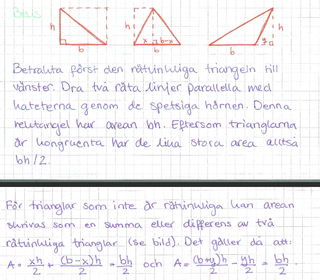 Bevis
h h h
b x b-x b y
b
Betrakta först den rätvinkliga triangeln till
vänster. Dra två räta linjer parallella med
kateterna genom de spetsiga hörnen. Denna
rektangel har arean bh. Eftersom trianglarna
är kongruenta har de lika stora area alltså
bh/2.
För trianglar som inte är rätvinkliga kan arean
skrivas som en summa eller differens av två
rätvinkliga trianglar (se bild). Det gäller då att:
A = xh/2 + (b-x)h/2 = bh/2 och A = (b+y)h/2 - yh/2 = bh/2